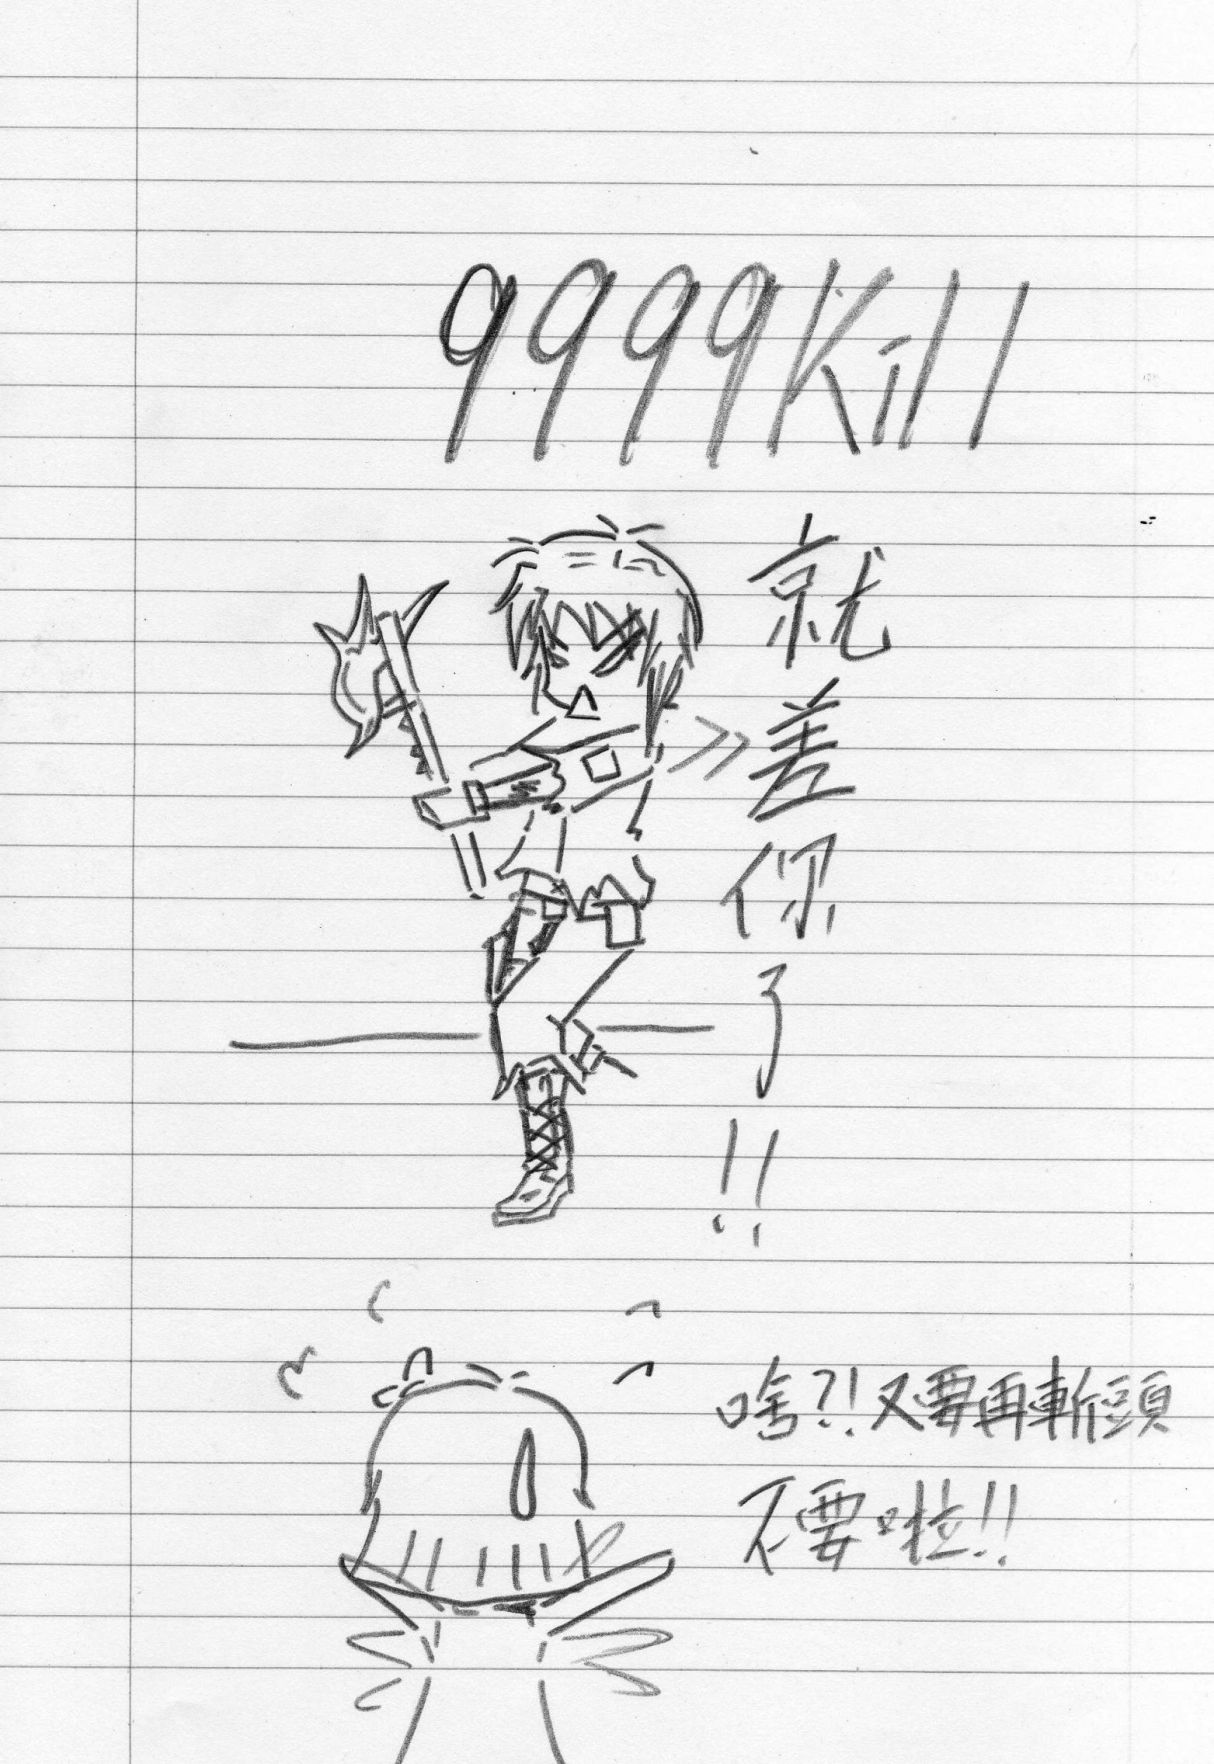 9999Kill
就差你了!!
啥?!又要再斬頭
不要啦!!